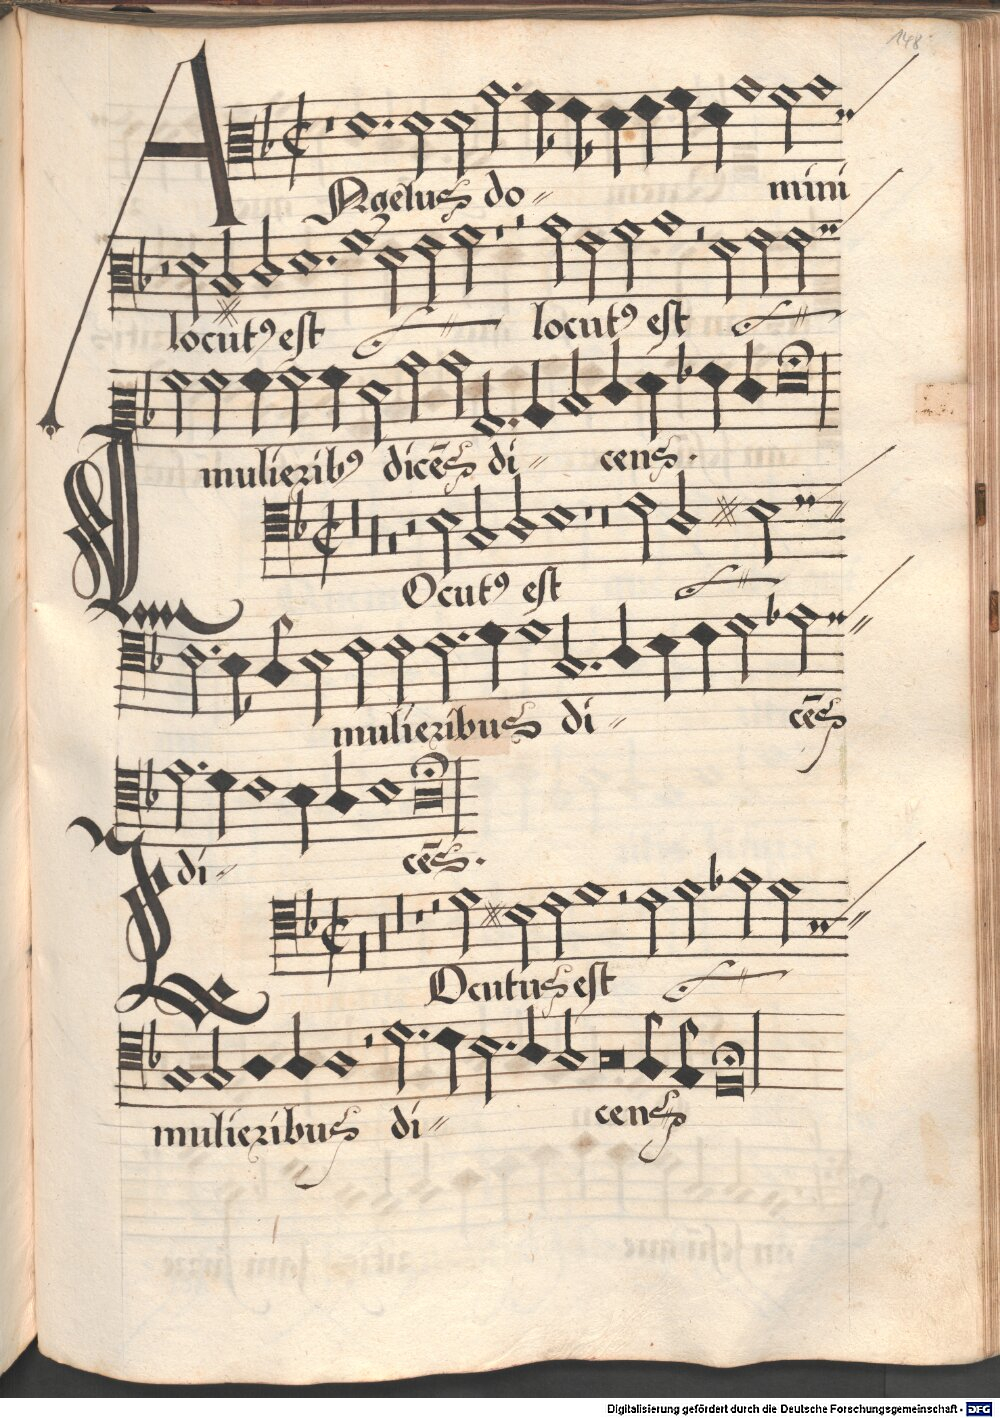 148
ANgelus do= mini
locutꝯ est locutꝯ est
mulieribꝯ dicēs di= cens.
LOcutꝯ est
mulieribus di= cēs
di= cēs.
LOcutus est
mulieribus di= cens
Digitalisierung gefördert durch die Deutsche Forschungsgemeinschaft - DFG